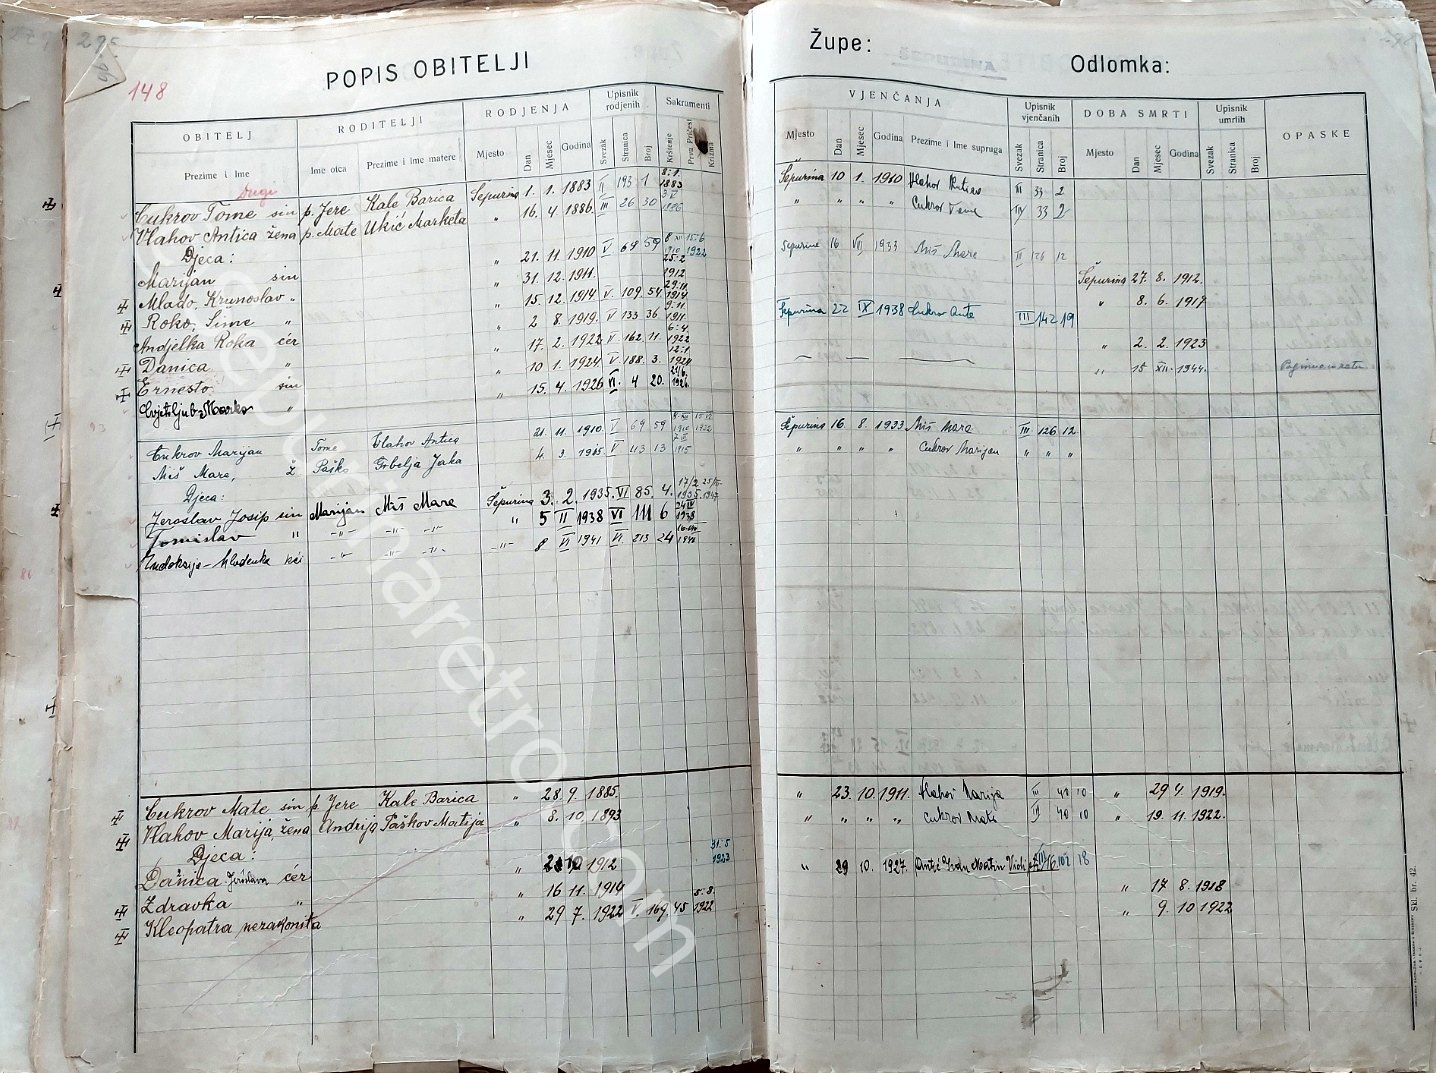 148
POPIS OBITELJI
Župe: ŠEPURINA Odlomka:
OBITELJ RODITELJI RODJENJA Upisnik rodjenih Sakrumenti VJENČANJA Upisnik vjenčanih DOBA SMRTI Upisnik umrlih OPASKE
Prezime i Ime Ime otca Prezime i Ime matere Mjesto Dan Mjesec Godina Svezak Stranica Broj Krštenje Prva Pričest Krizma Mjesto Dan Mjesec Godina Prezime i Ime supruga Svezak Stranica Broj Mjesto Dan Mjesec Godina Svezak Stranica Broj
Drugi
Cukrov Tome sin p. Jere Kale Barica Šepurina 1. 1. 1883 II 193 1 8. 1. 1883 Šepurina 10 1. 1910 Vlahov III 33 2
Vlahov Antica žena p. Mate Ukić Marketa " 16. 4. 1886. III 26 30 1886 " " " " Cukrov Tome III 33 2
Djeca:
Marijan sin " 21. 11. 1910 V 69 59 8 XII 1910 15. 6 1922 Šepurina 16 VII 1933 Miš Mare III 126 12
Mlado, Krunoslav " " 31. 12. 1911. 25. 2. 1912 Šepurina 27. 8. 1912.
Roko, Šime " " 15. 12. 1914 V. 109. 54. 29. 11. 1914 " 8. 6. 1917
Andjelka Roka ćer " 2 8. 1919. V 133 36 9. 11. Šepurina 22 IX 1938 Cukrov Ante III 142 19
Danica " " 17. 2. 1922 V 162 11. 6. 4. 1922 " 2. 2. 1923
Ernesto sin " 10 1. 1924. V. 188. 3. 12. 1. 1924 " 15 XII. 1944.
Cvjetljub Marko " " 15. 4. 1926 VI. 4 20. 1926.
Cukrov Marijan Tome Vlahov Antica 21. 11. 1910. V 69 59 8 XII 1910 15 VI 1922 Šepurina 16. 8. 1933 Miš Mara III 126 12
Miš Mare, ž. Paško Grbelja Jaka 4 3. 1915 V 113 13 1915 " " " " Cukrov Marijan " " "
Djeca:
Jeroslav Josip sin Marijan Miš Mare Šepurina 3. 2. 1935. VI 85. 4. 17/2 1935. 1947
Tomislav " -"- -"- -"- " 5 II 1938 VI 111 6 1938
Mladenka kći -"- -"- -"- -"- 8 VI 1941 VI. 213 24
Cukrov Mate sin p. Jere Kale Barica " 28. 9. 1885 " 23. 10 1911. Vlahov Marija III 40 10 " 29 4. 1919.
Vlahov Marija, žena Andrija Paškov Matija " 8. 10. 1893 " " " " Cukrov Mate III 40 10 " 19. 11. 1922.
Djeca:
Danica Jeroslava ćer " 10 1912 31. 5 1923 " 29 10. 1927. 18
Zdravka " " 16 11. 1914 " 17 8. 1918
Kleopatra nezakonita " 29 7. 1922 V. 169. 45 5. 8. 1922 " 9. 10 1922
Skl. br. 42
sepurinaretro.com